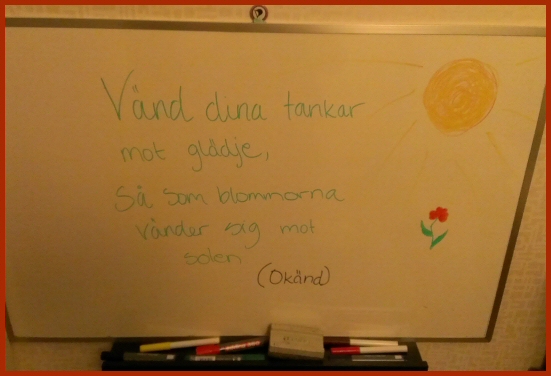 Vänd dina tankar
mot glädje,
Så som blommorna
vänder sig mot
solen
(Okänd)